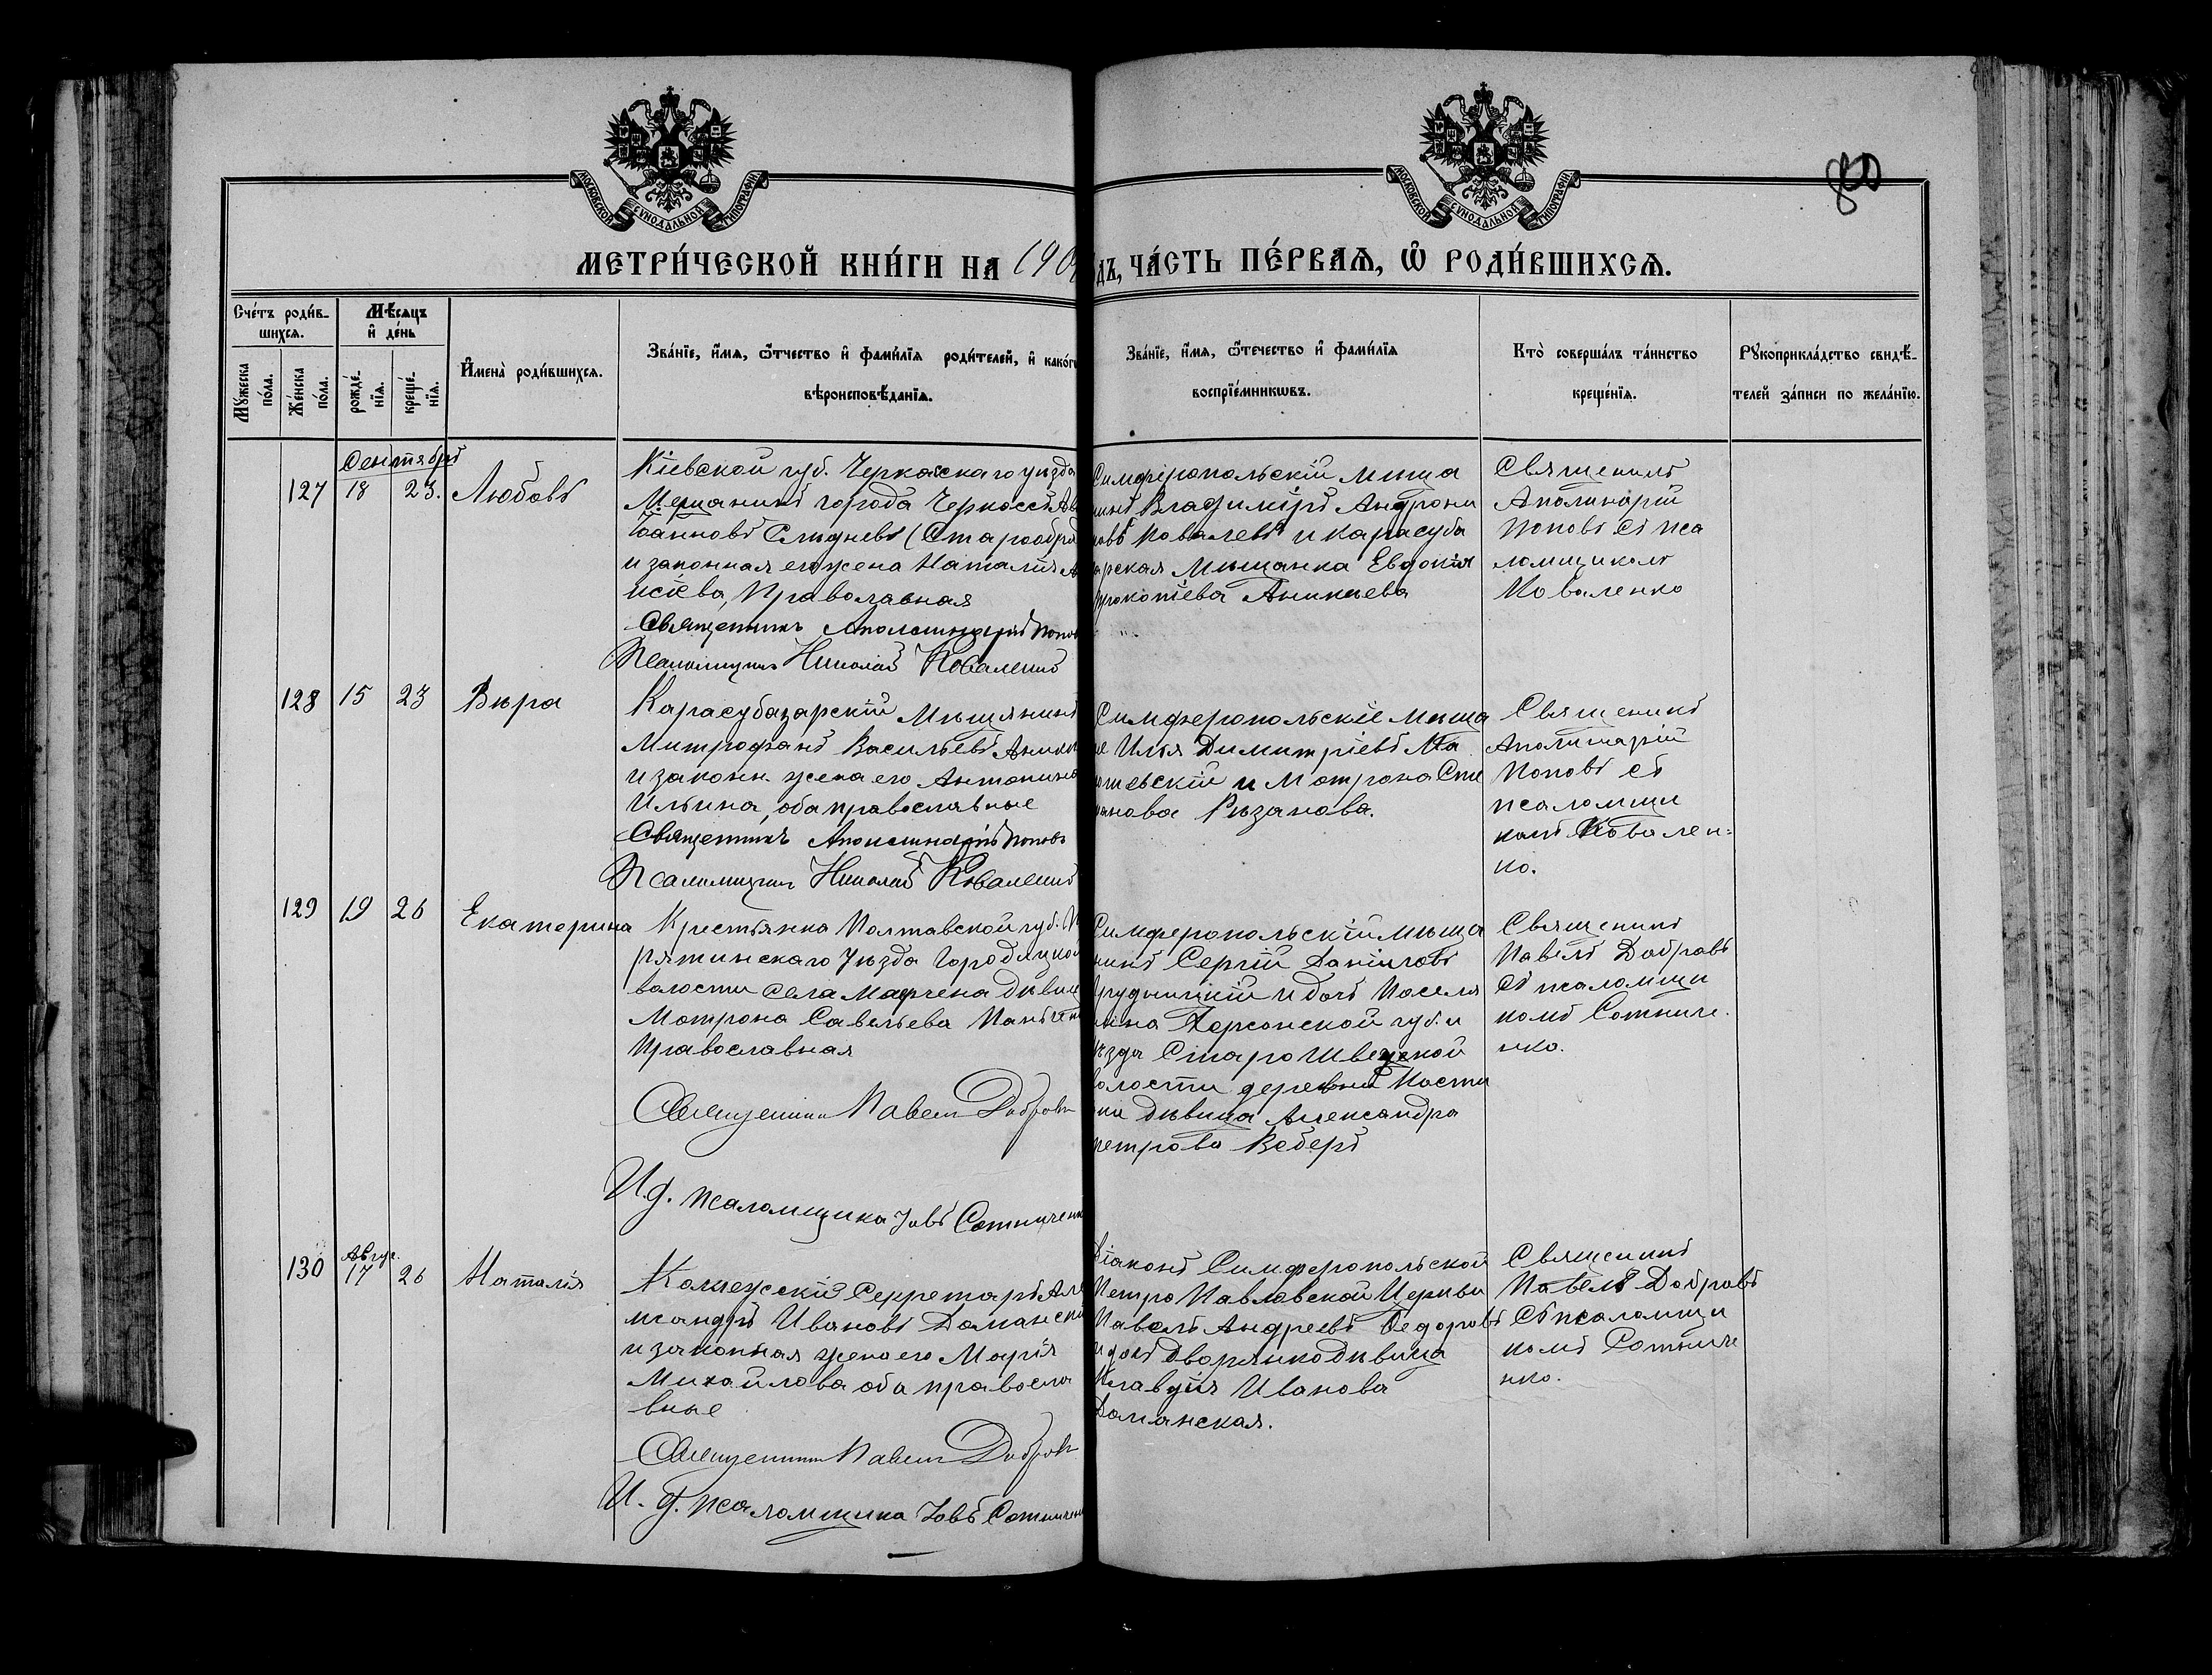 МОСКОВСКОЙ СѴНОДАЛЬНОЙ ТИПОГРАФІИ
МОСКОВСКОЙ СѴНОДАЛЬНОЙ ТИПОГРАФІИ
МЕТРИ́ЧЕСКОЙ КНИ́ГИ НА 190
дъ, ЧА́СТЬ ПЕ́РВАѦ, Ѡ҆ РОДИ́ВШИХСѦ.
Сче́тъ роди́в-
шихсѧ.
Мѣ́сѧцъ
и҆ де́нь
Мꙋ́жеска
по́ла.
Же́нска
по́ла.
рожде́-
нїѧ.
креще́-
нїѧ.
И҆мена̀ роди́вшихсѧ.
Зва́нїе, и҆́мѧ, ѻ҆́тчество и҆ фами́лїѧ роди́телей, и҆ како́г
вѣроисповѣ́данїѧ.
Зва́нїе, и҆́мѧ, ѻ҆́течество и҆ фами́лїѧ
воспрїе́мникѡвъ.
Кто̀ соверша́лъ та́инство
креще́нїѧ.
Рꙋкоприкла́дство свидѣ́-
телей за́писи по жела́нїю.
Сентябрь
127 18 23. Любовь
Кіевской губ. Черкаскаго уѣзда
Мещанинъ города Черкассъ
Іоанновъ (Старообря
и законная его жена Наталія
исіева, Православная
Священникъ Аполлинарій Попов
Псаломщикъ Николай Коваленко
Симферопольскій мѣща
нинъ Владиміръ Андрони
ковъ Ковалевъ и карасуба
арская Мѣщанка Евдокія
рокопіева Аникиева
Священикъ
Аполинарій
Поповъ съ пса
ломщикомъ
Коваленко
128 15 23 Вѣра
Карасубазарскій Мѣщянинъ
Митрофанъ Васильевъ Аники
и законн. жена его Антонина
Ильина, оба православные
Священникъ Аполлинарій Поповъ
Псаломщикъ Николай Коваленко
Симферопольскіе Мѣща
не Илья Димитріевъ Ма
и Мотрона Сте
анова Рѣзанова.
Священикъ
Аполинарій
Поповъ съ
псаломщи
комъ Ковален-
ко.
129 19 26 Екатерина
Крестьянка Полтавской губ. П
рятинскаго Уѣзда Городицкой
волости села дѣвиц
Мотрона Савельева
Православная
Священникъ Павелъ Добровъ
И.д. псаломщика Іовъ Сотниченк
Симферопольскій мѣща
нинъ Сергій Даніиловъ
рудницкій и дочь Поселя
нина Херсонской губ. и
ѣзда Старо Шведской
олости деревни Кости
дѣвица Александра
петрова Веберъ
Священикъ
Павелъ Добровъ
съ псаломщи
комъ Сотниче
нко.
Авгус.
130 17 26 Наталія
Коллежскій Секретарь Але
ксандръ Ивановъ Доманскі
и законная жена его Марія
Михайлова оба правосла
вные
Священникъ Павелъ Добровъ
И. д. псаломщика Іовъ Сотничен
Діаконъ Симферопольской
Петро Павловской Церкви
Павелъ Андреевъ Ѳедоровъ
и дочь дворянина дѣвица
Клавдія Иванова
Доманская.
Священикъ
Павелъ Добровъ
Съ псаломщи
комъ Сотниче
нко.